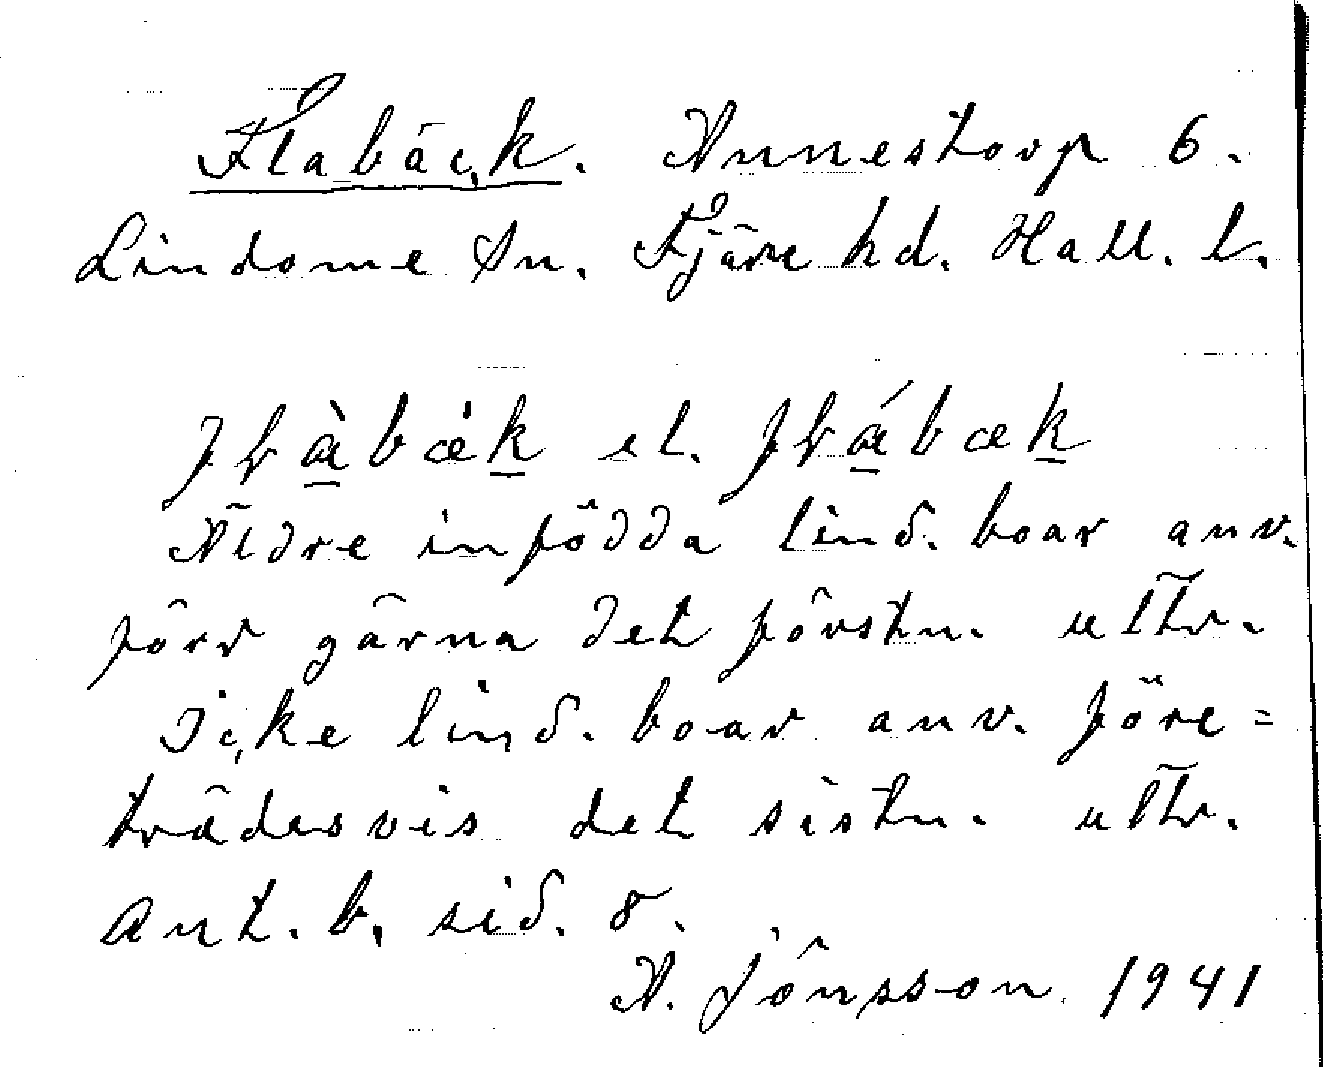 Flabäck. Annestorp 6.
Lindome sn. Fjäre hd. Hall. l.
flàbæ̀k el. flábæk
Äldre infödda lind. boar anv.
förr gärna det förstn. uttr.
Icke lind. boar anv. före=
trädesvis det sistn. uttr.
Ant. b. sid. 8.
A. Jönsson 1941